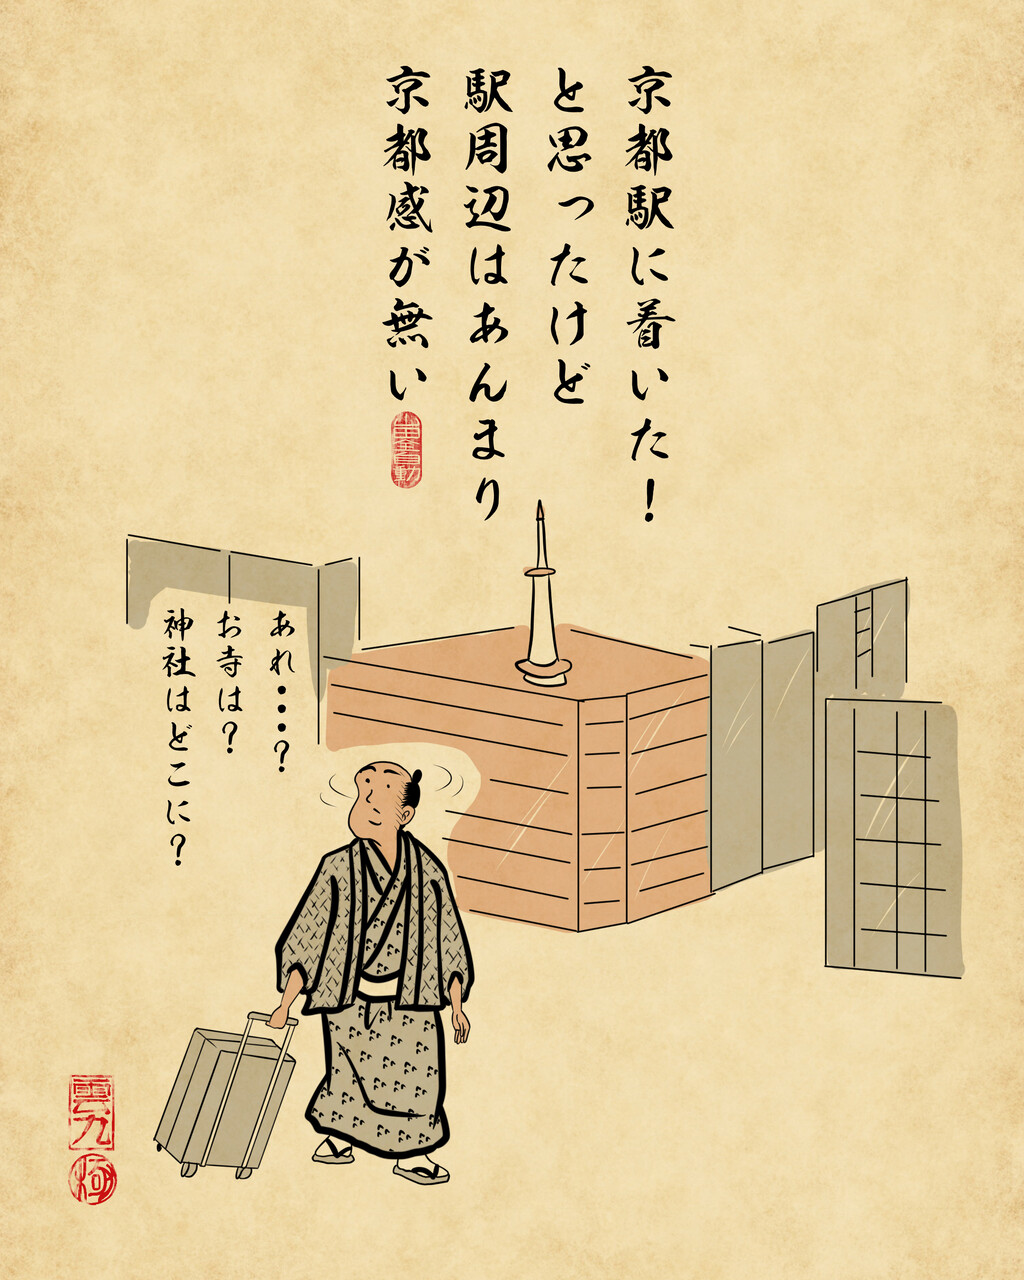 京都駅に着いた！
と思ったけど
駅周辺はあんまり
京都感が無い
あれ・・・？
お寺は？
神社はどこに？